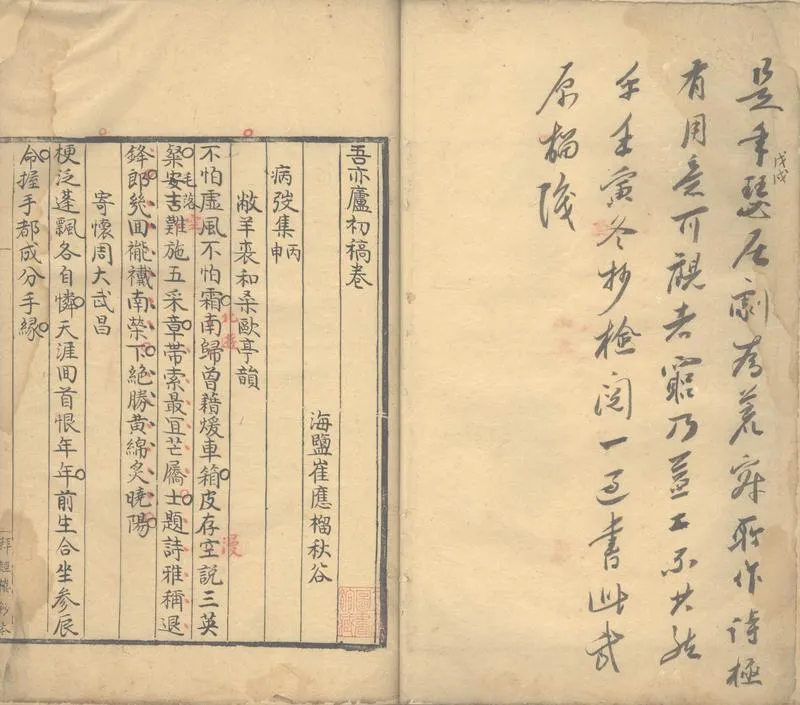 是年瑟居劇為荒寂所作詩極
戊戌
有用意可觀者窮乃益工不其然
乎壬寅冬杪檢閱一過書此武
原榴識
吾亦廬初稿卷
海鹽崔應榴秋谷
病集丙申
敝羊裘和桑歐亭韻
不怕虛風不怕霜南歸曾藉煖車箱皮存空說三英
北遊
漫
粲安吉難施五采章帶索最宜芒屩士題詩雅稱退
毛落
鋒郎幾回褦襶南榮下絕勝黃綿炙曉陽
寄懷周大武昌
梗泛蓬飄各自憐天涯回首恨年年前生合坐參辰
命握手都成分手緣
拜經樓鈔本